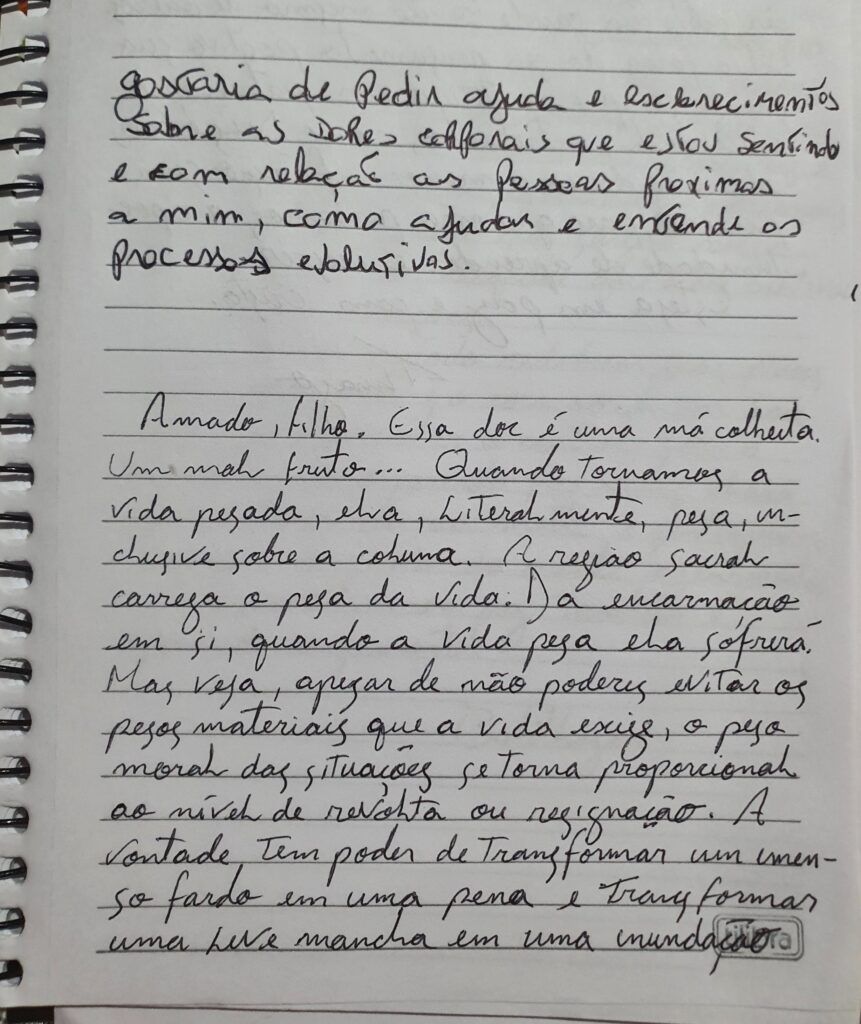 gostaria de Pedir ajuda e esclarecimentos
sobre as dores corporais que estou sentindo
e com relação as pessoas proximas
a mim, como ajudar e entende os
processos evolutivas.
Amado, filho. Essa dor é uma má colheita.
Um mal fruto... Quando tornamos a
vida pesada, ela, literalmente, pesa, in-
clusive sobre a coluna. A região sacral
carrega o peso da vida. Da encarnação
em si, quando a vida pesa ela sofrerá.
Mas veja, apesar de não poderes evitar os
pesos materiais que a vida exige, o peso
moral das situações se torna proporcional
ao nível de revolta ou resignação. A
vontade, tem poder de transformar um imen-
so fardo em uma pena e transformar
uma leve mancha em uma inundação